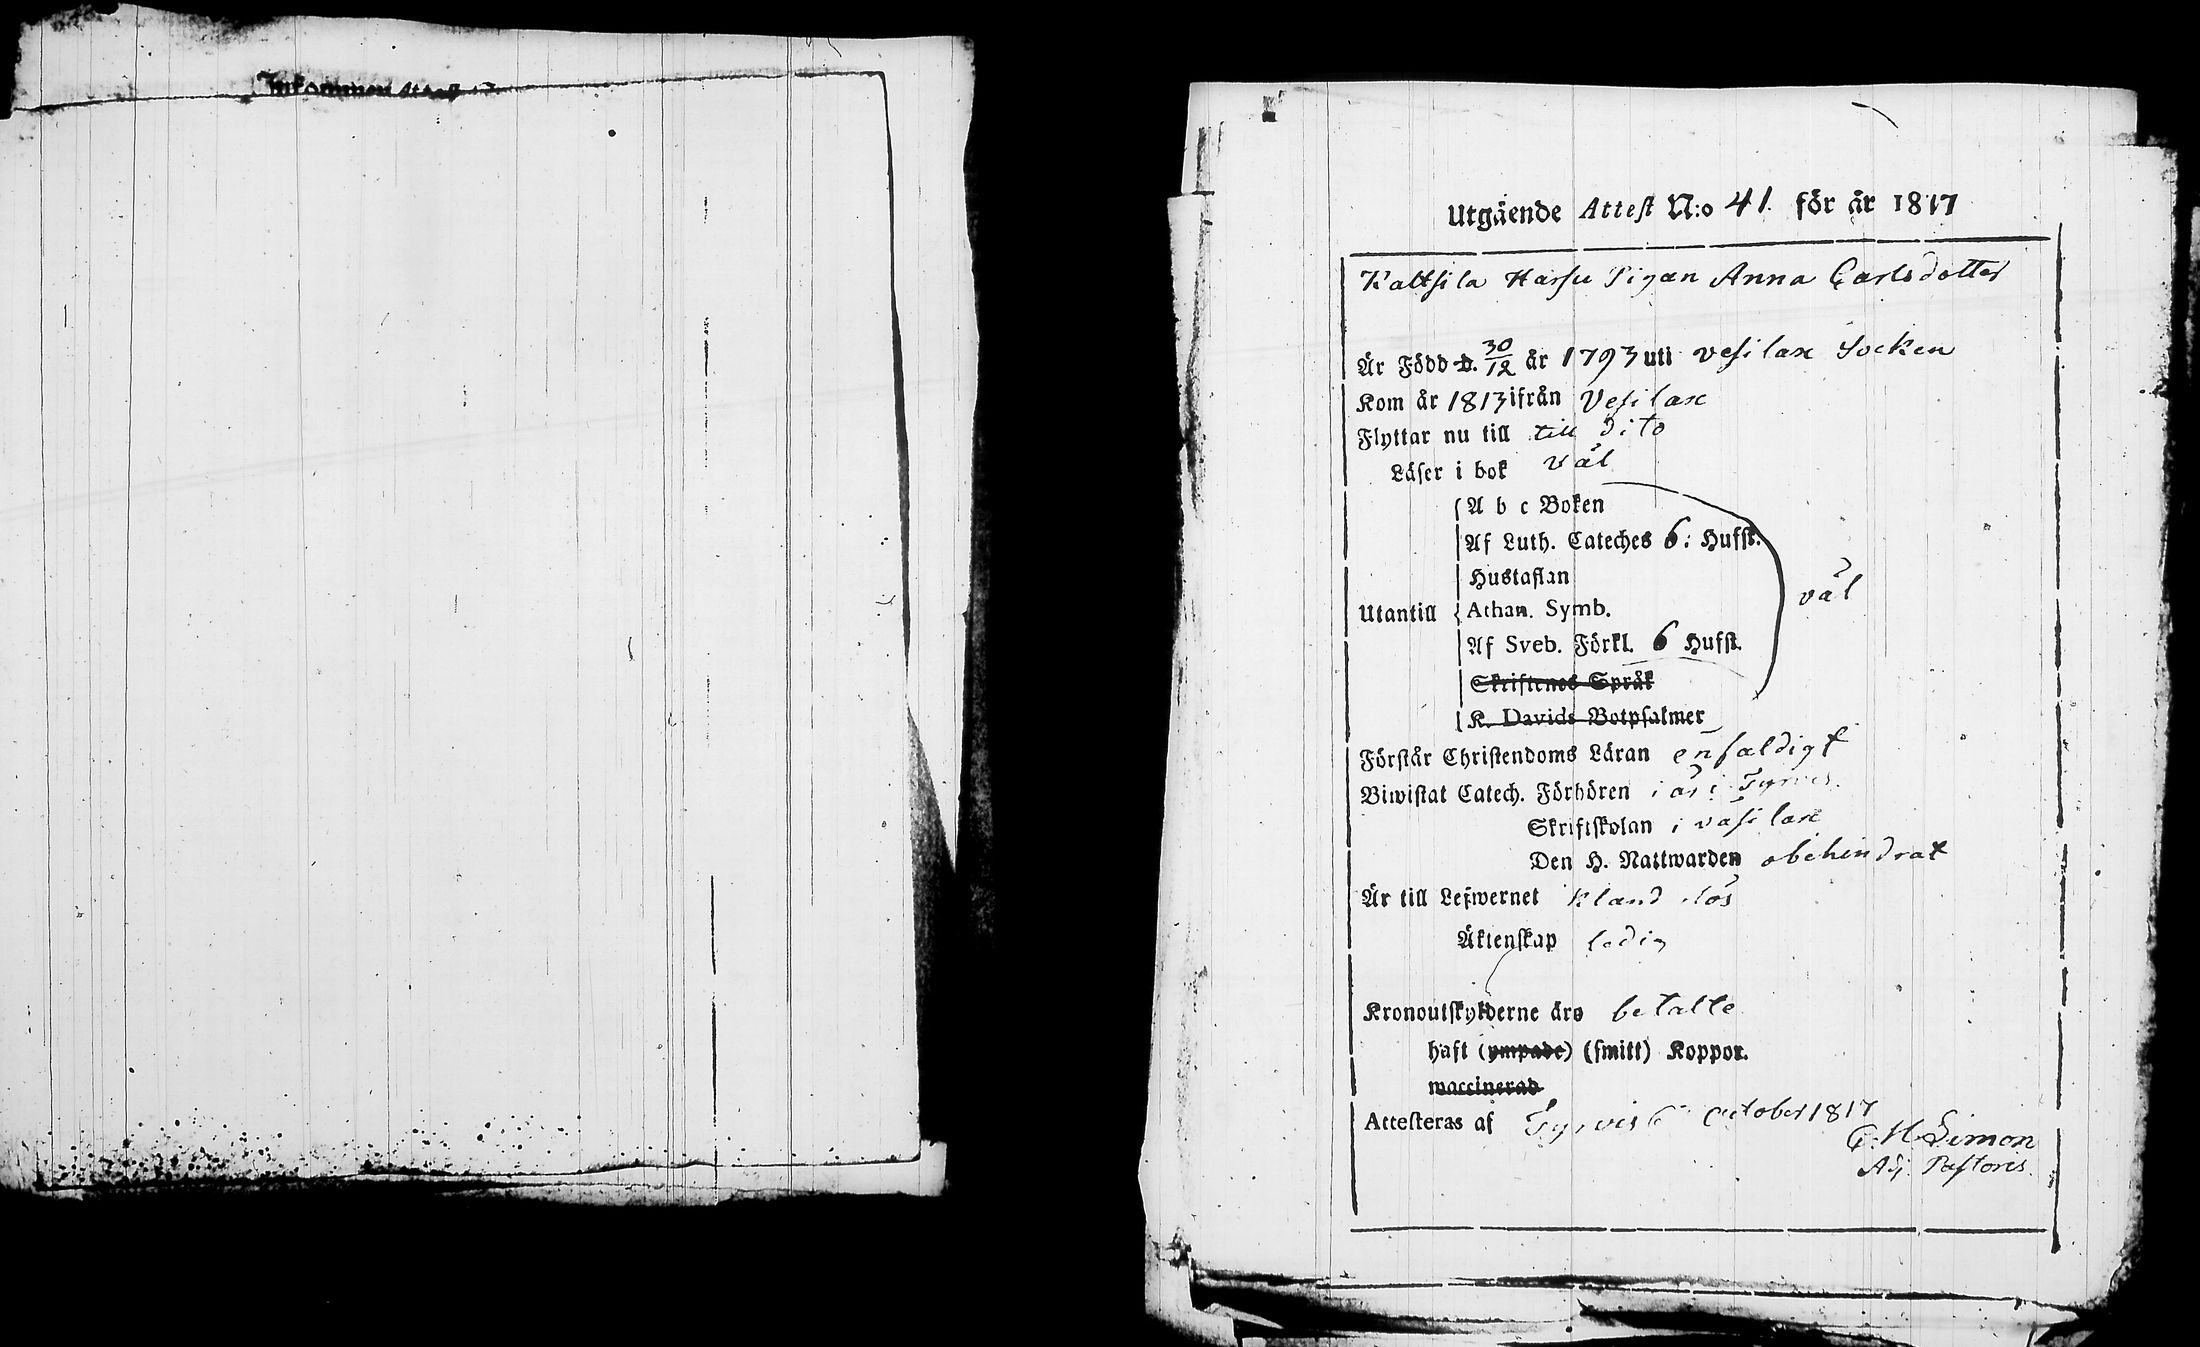 Inkommen Attest
Utgäende Attest N:o 41. för år 1817
Kaltsila Harju Pigan Anna Carlsdotter
Är Född D. 30/12 år 1793 uti Vesilax Socken
Kom år 1813 ifrån Vesilax
Flyttar nu till till dito
Läser i bok väl
A b c Boken
Af Luth. Cateches 6: Hufst.
Hustaflan
Utantill Athan. Symb. väl
Af Sveb. Förkl. 6 Hufst.
Skriftenes Språk
K. Davids Botpsalmer
Förstår Christendoms Läran enfaldigt
Biwistat Catech. Förhören i år i Tyrvis
Skriftskolan i väsilax
Den H. Nattwarden obehindrat
Är till Lefwernet klandlös
Äktenskap ledig
Kronoutskylderne äro betalte
haft (ympade) (smitt) Koppor.
waccinerad
Attesteras af Tyrvis 6 October 1817
G. H. Limon
Adj. Pastoris.